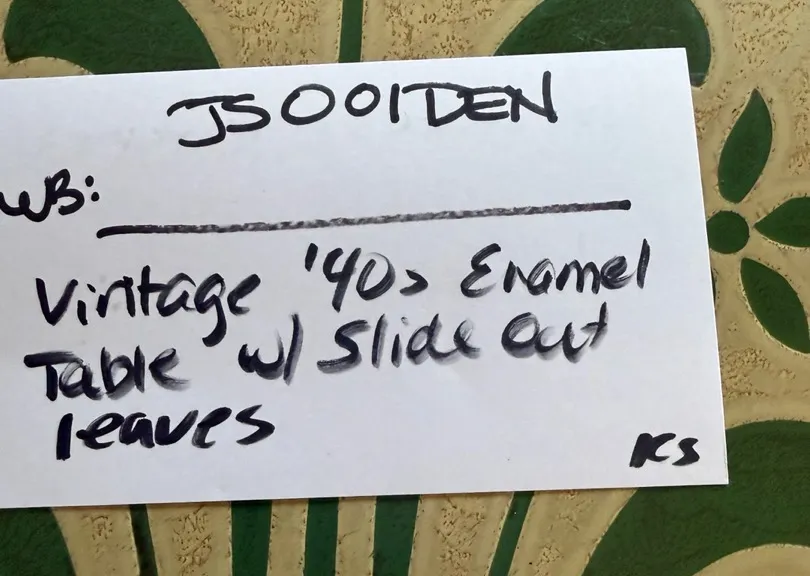 JS001DEN
WB:
Vintage '40s Enamel
Table w/ Slide Out
leaves
KS